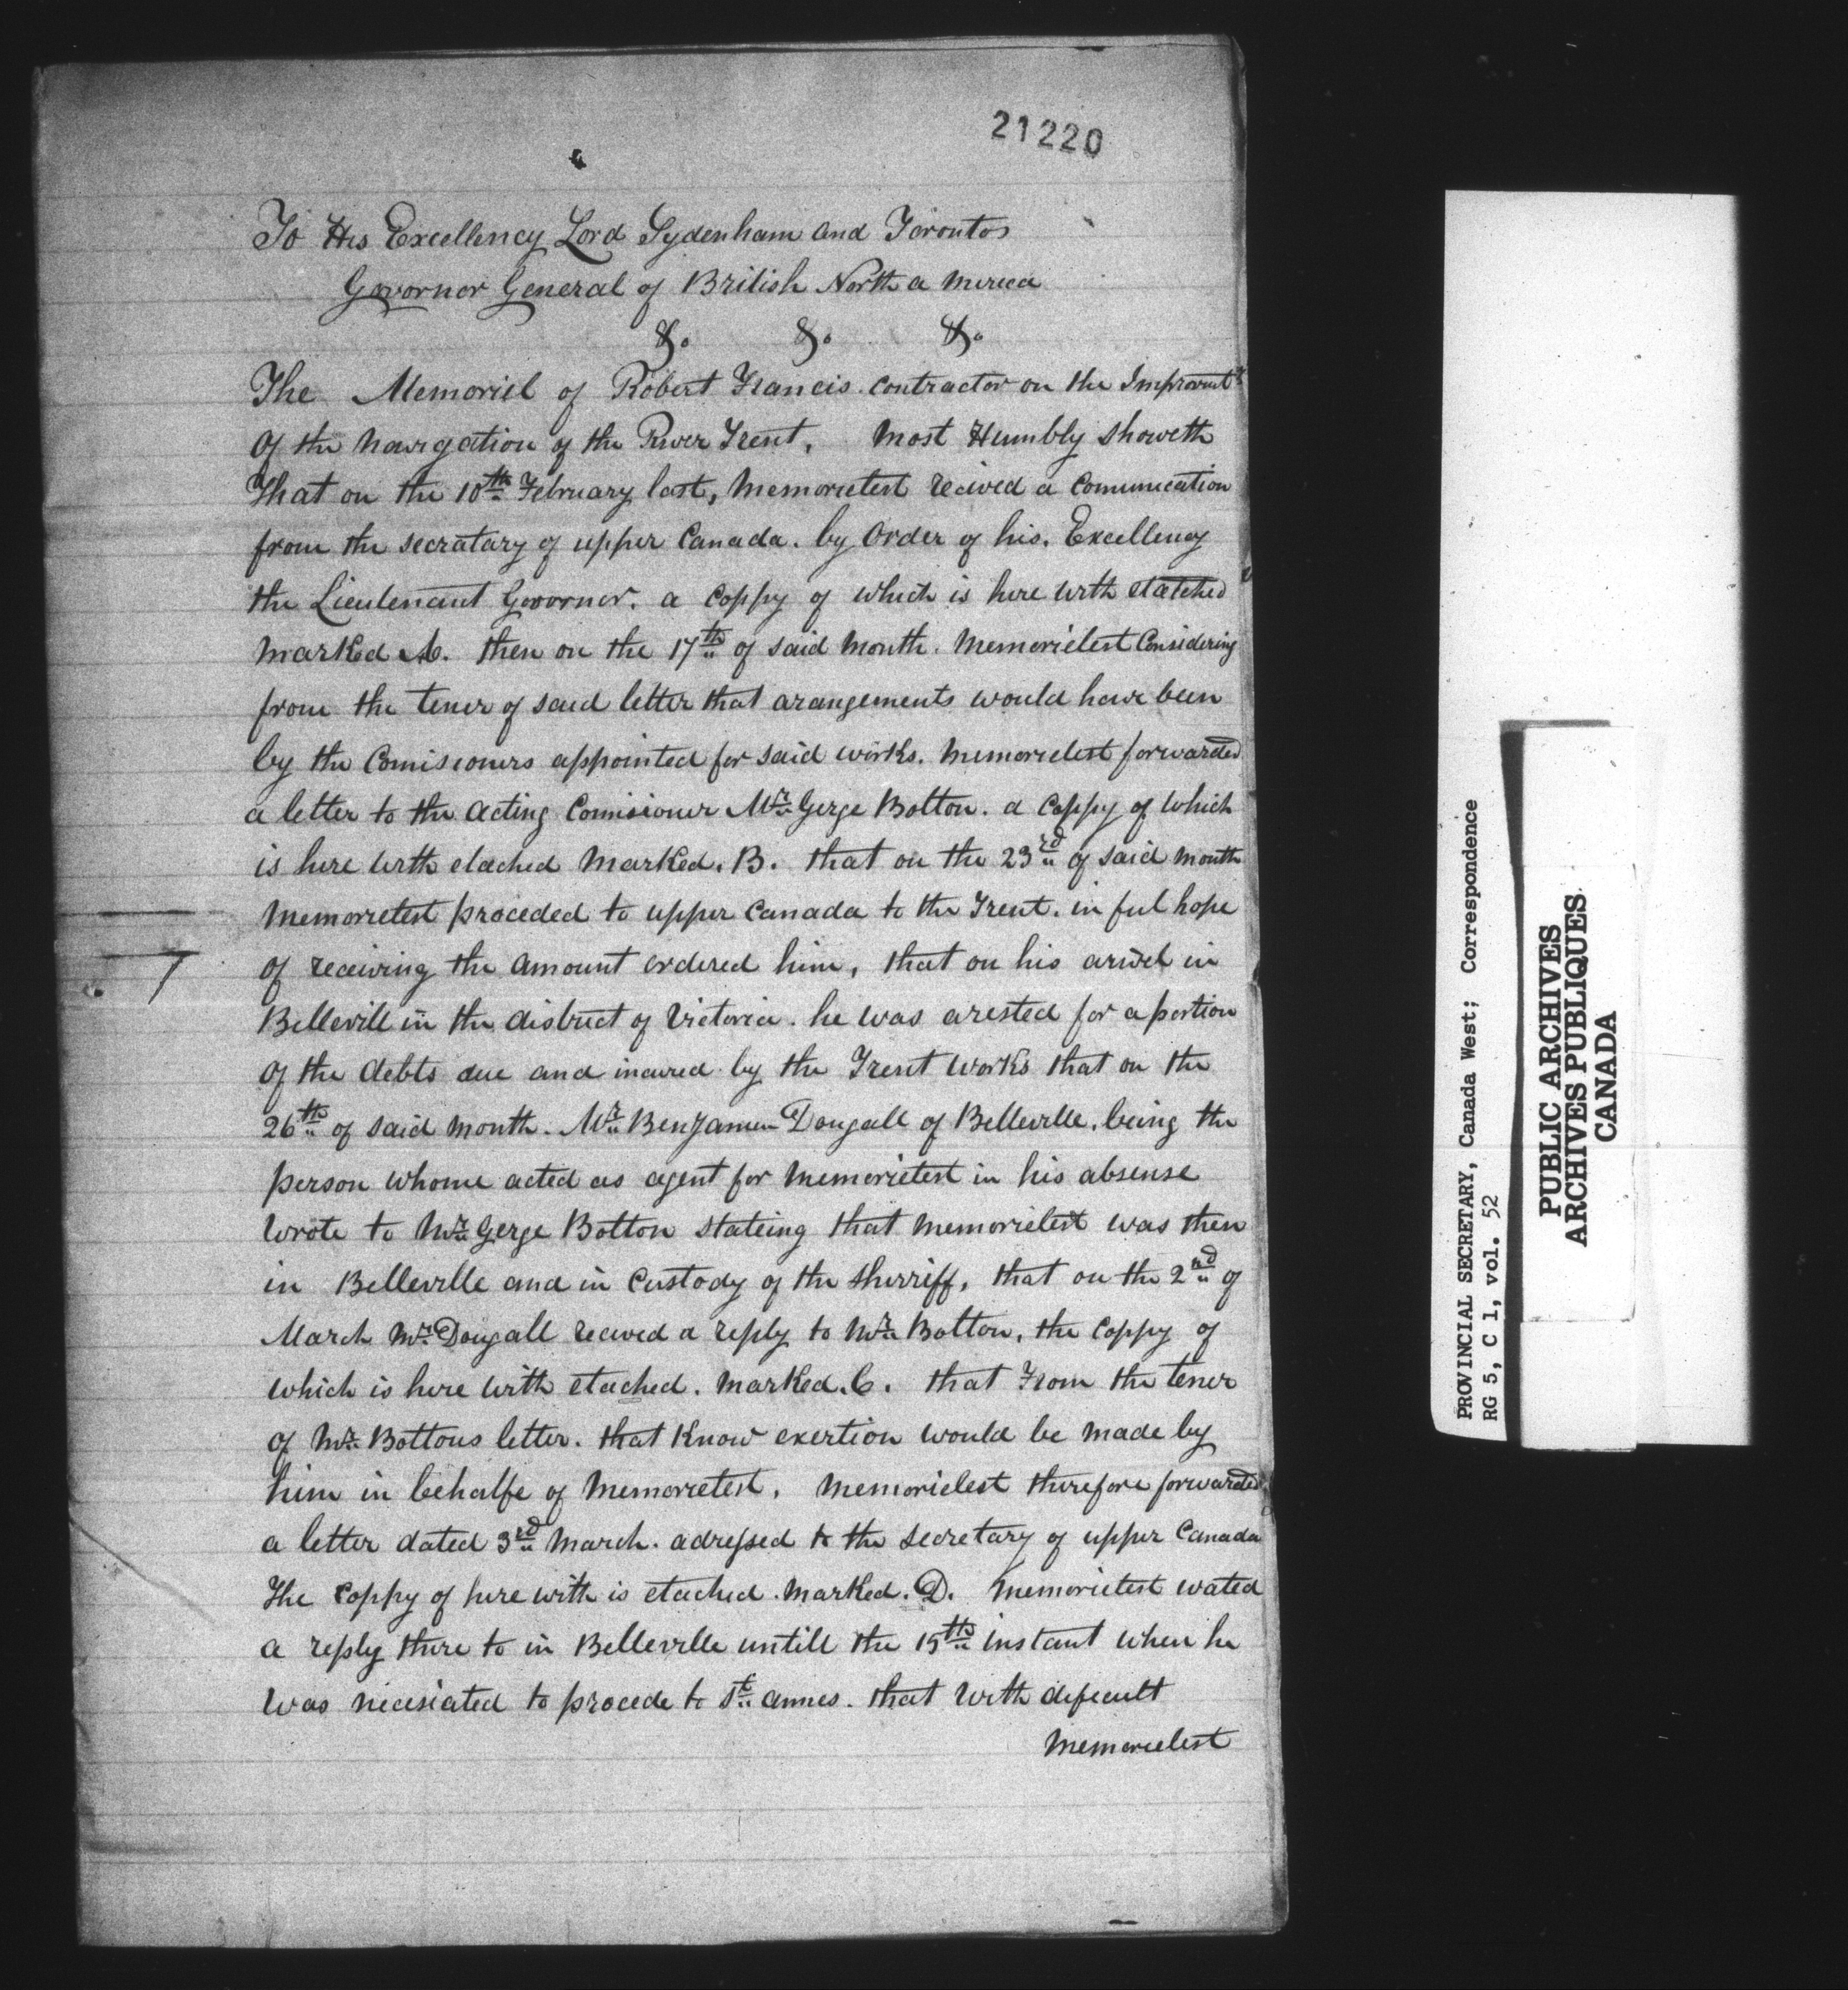 21220
To His Excellency Lord Sydenham and Toronto
Govornor General of British North a merica
&. &. &.
The Memoriel of Robert Francis contractor on the Improvmts
of the Navigation of the River Trent, Most Humbly Showeth
That on the 10th February last, Memorielest Recived a Comunication
from the secratary of upper Canada. by Order of his. Excellency
the Lieutenant Govornor. a Coppy of which is here with etatched
Marked A. then on the 17th of said Month. Memorielest Considering
from the tener of said letter that arangements would have been
by the Comisioners appointed for said works. Memorielest forwarded
a letter to the Acting Comisioner Mr Gerge Bolton. a Coppy of which
is here with etached Marked. B. that on the 23rd of said month
Memorielest proceded to upper Canada to the Trent. in ful hope
of receiving the Amount ordered him, that on his arivel in
Bellevill in the district of Victoria. he was arested for a portion
of the debts due and incured by the Trent works that on the
26th of said month. Mr Benjamen Dougall of Belleville. being the
person whome acted as agent for Memorielest in his absense
wrote to Mr Gerge Bolton stateing that Memorielest was then
in Belleville and in Custody of the Sherriff, that on the 2nd of
March Mr Dougall recived a reply to Mr Bolton, the Coppy of
which is here with etached. Marked. C. that From the tener
of Mr Boltons letter. that Know exertion would be made by
him in behalfe of Memorielest. Memorielest therefore forwarded
a letter dated 3rd March. adressed to the secretary of upper Canada
The Coppy of here with is etached. Marked. D. Memorielest wated
a reply there to in Belleville untill the 15th instant when he
was necesiated to procede to St annes. that with dificult
Memorielest
PROVINCIAL SECRETARY, Canada West; Correspondence
RG 5, C 1, vol. 52
PUBLIC ARCHIVES
ARCHIVES PUBLIQUES
CANADA